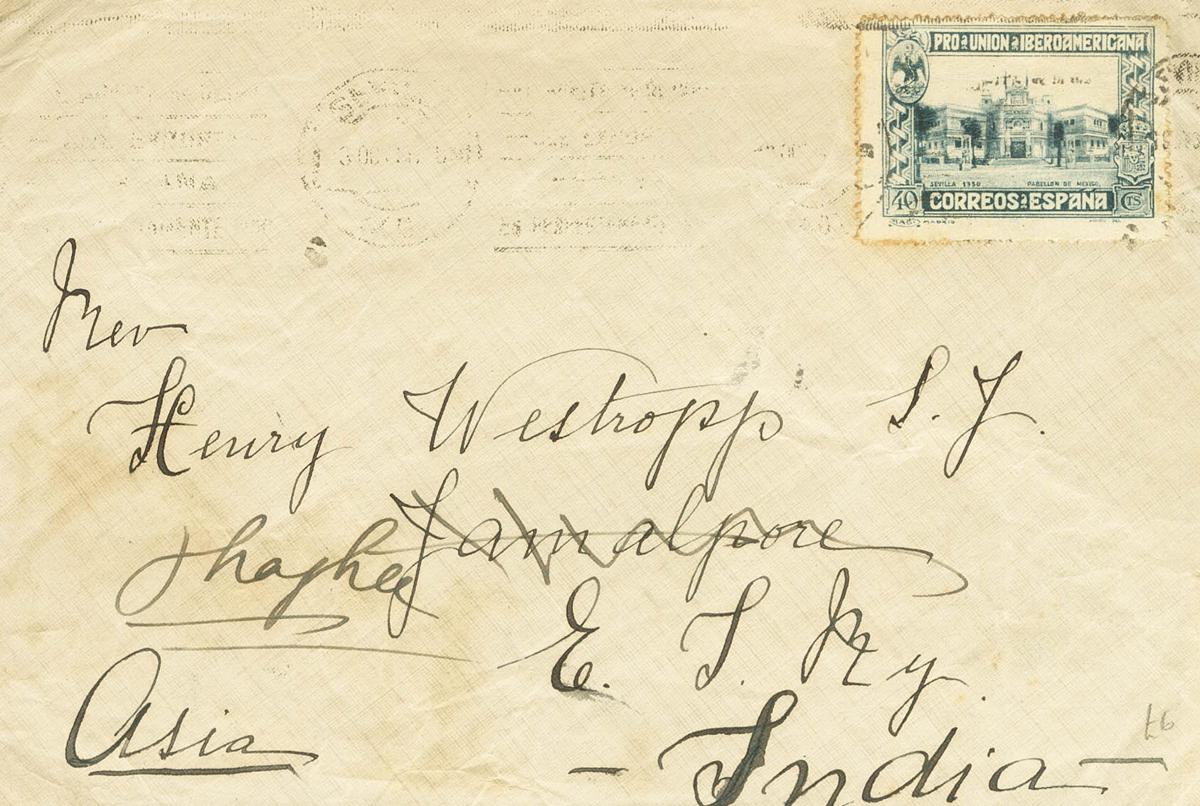 PRO = UNION = IBEROAMERICANA
SEVILLA 1930 PABELLON DE MEXICO
40 CORREOS = ESPAÑA CTS
Rev
Henry Westropp S. J.
Jamalpore
E. I. Ry.
Asia
- India -